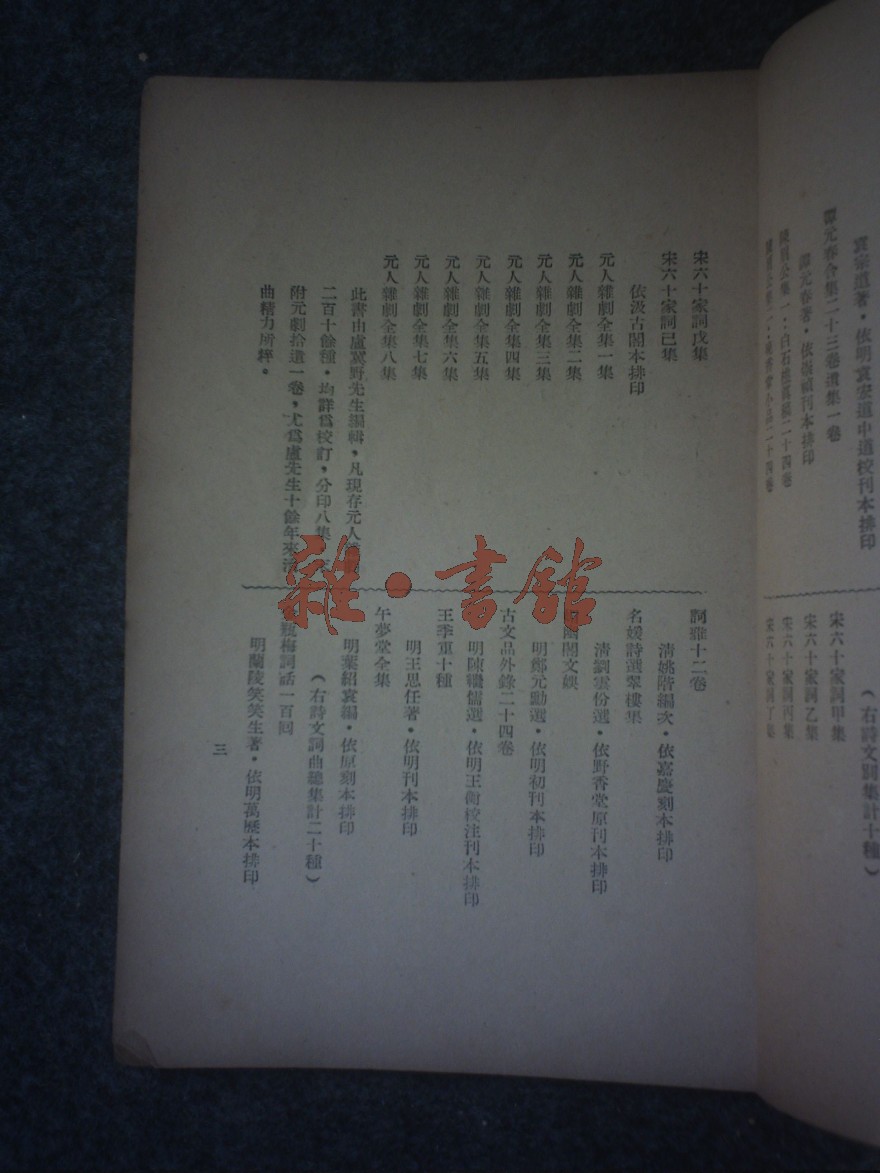 袁宗道著・依明袁宏道中道校刊本排印
譚元春合集二十三卷遺集一卷
譚元春著・依崇禎刊本排印
宋六十家詞甲集
宋六十家詞乙集
宋六十家詞丙集
宋六十家詞丁集
（右詩文別集計十種）
宋六十家詞戊集
宋六十家詞己集
依汲古閣本排印
元人雜劇全集一集
元人雜劇全集二集
元人雜劇全集三集
元人雜劇全集四集
元人雜劇全集五集
元人雜劇全集六集
元人雜劇全集七集
元人雜劇全集八集
此書由盧冀野先生編輯，凡現存元人雜
二百十餘種・均詳爲校訂，分印八集
附元劇拾遺一卷，尤爲盧先生十餘年來治
曲精力所粹。
詞雅十二卷
清姚階編次・依嘉慶刻本排印
名媛詩選翠樓集
清劉雲份選・依野香堂原刊本排印
閣文娛
明鄭元勳選・依明初刊本排印
古文品外錄二十四卷
明陳繼儒選・依明王衡校注刊本排印
王季重十種
明王思任著・依明刊本排印
午夢堂全集
明葉紹袁編・依原刻本排印
（右詩文詞曲總集計二十種）
瓶梅詞話一百回
明蘭陵笑笑生著・依明萬歷本排印
三
雜・書館